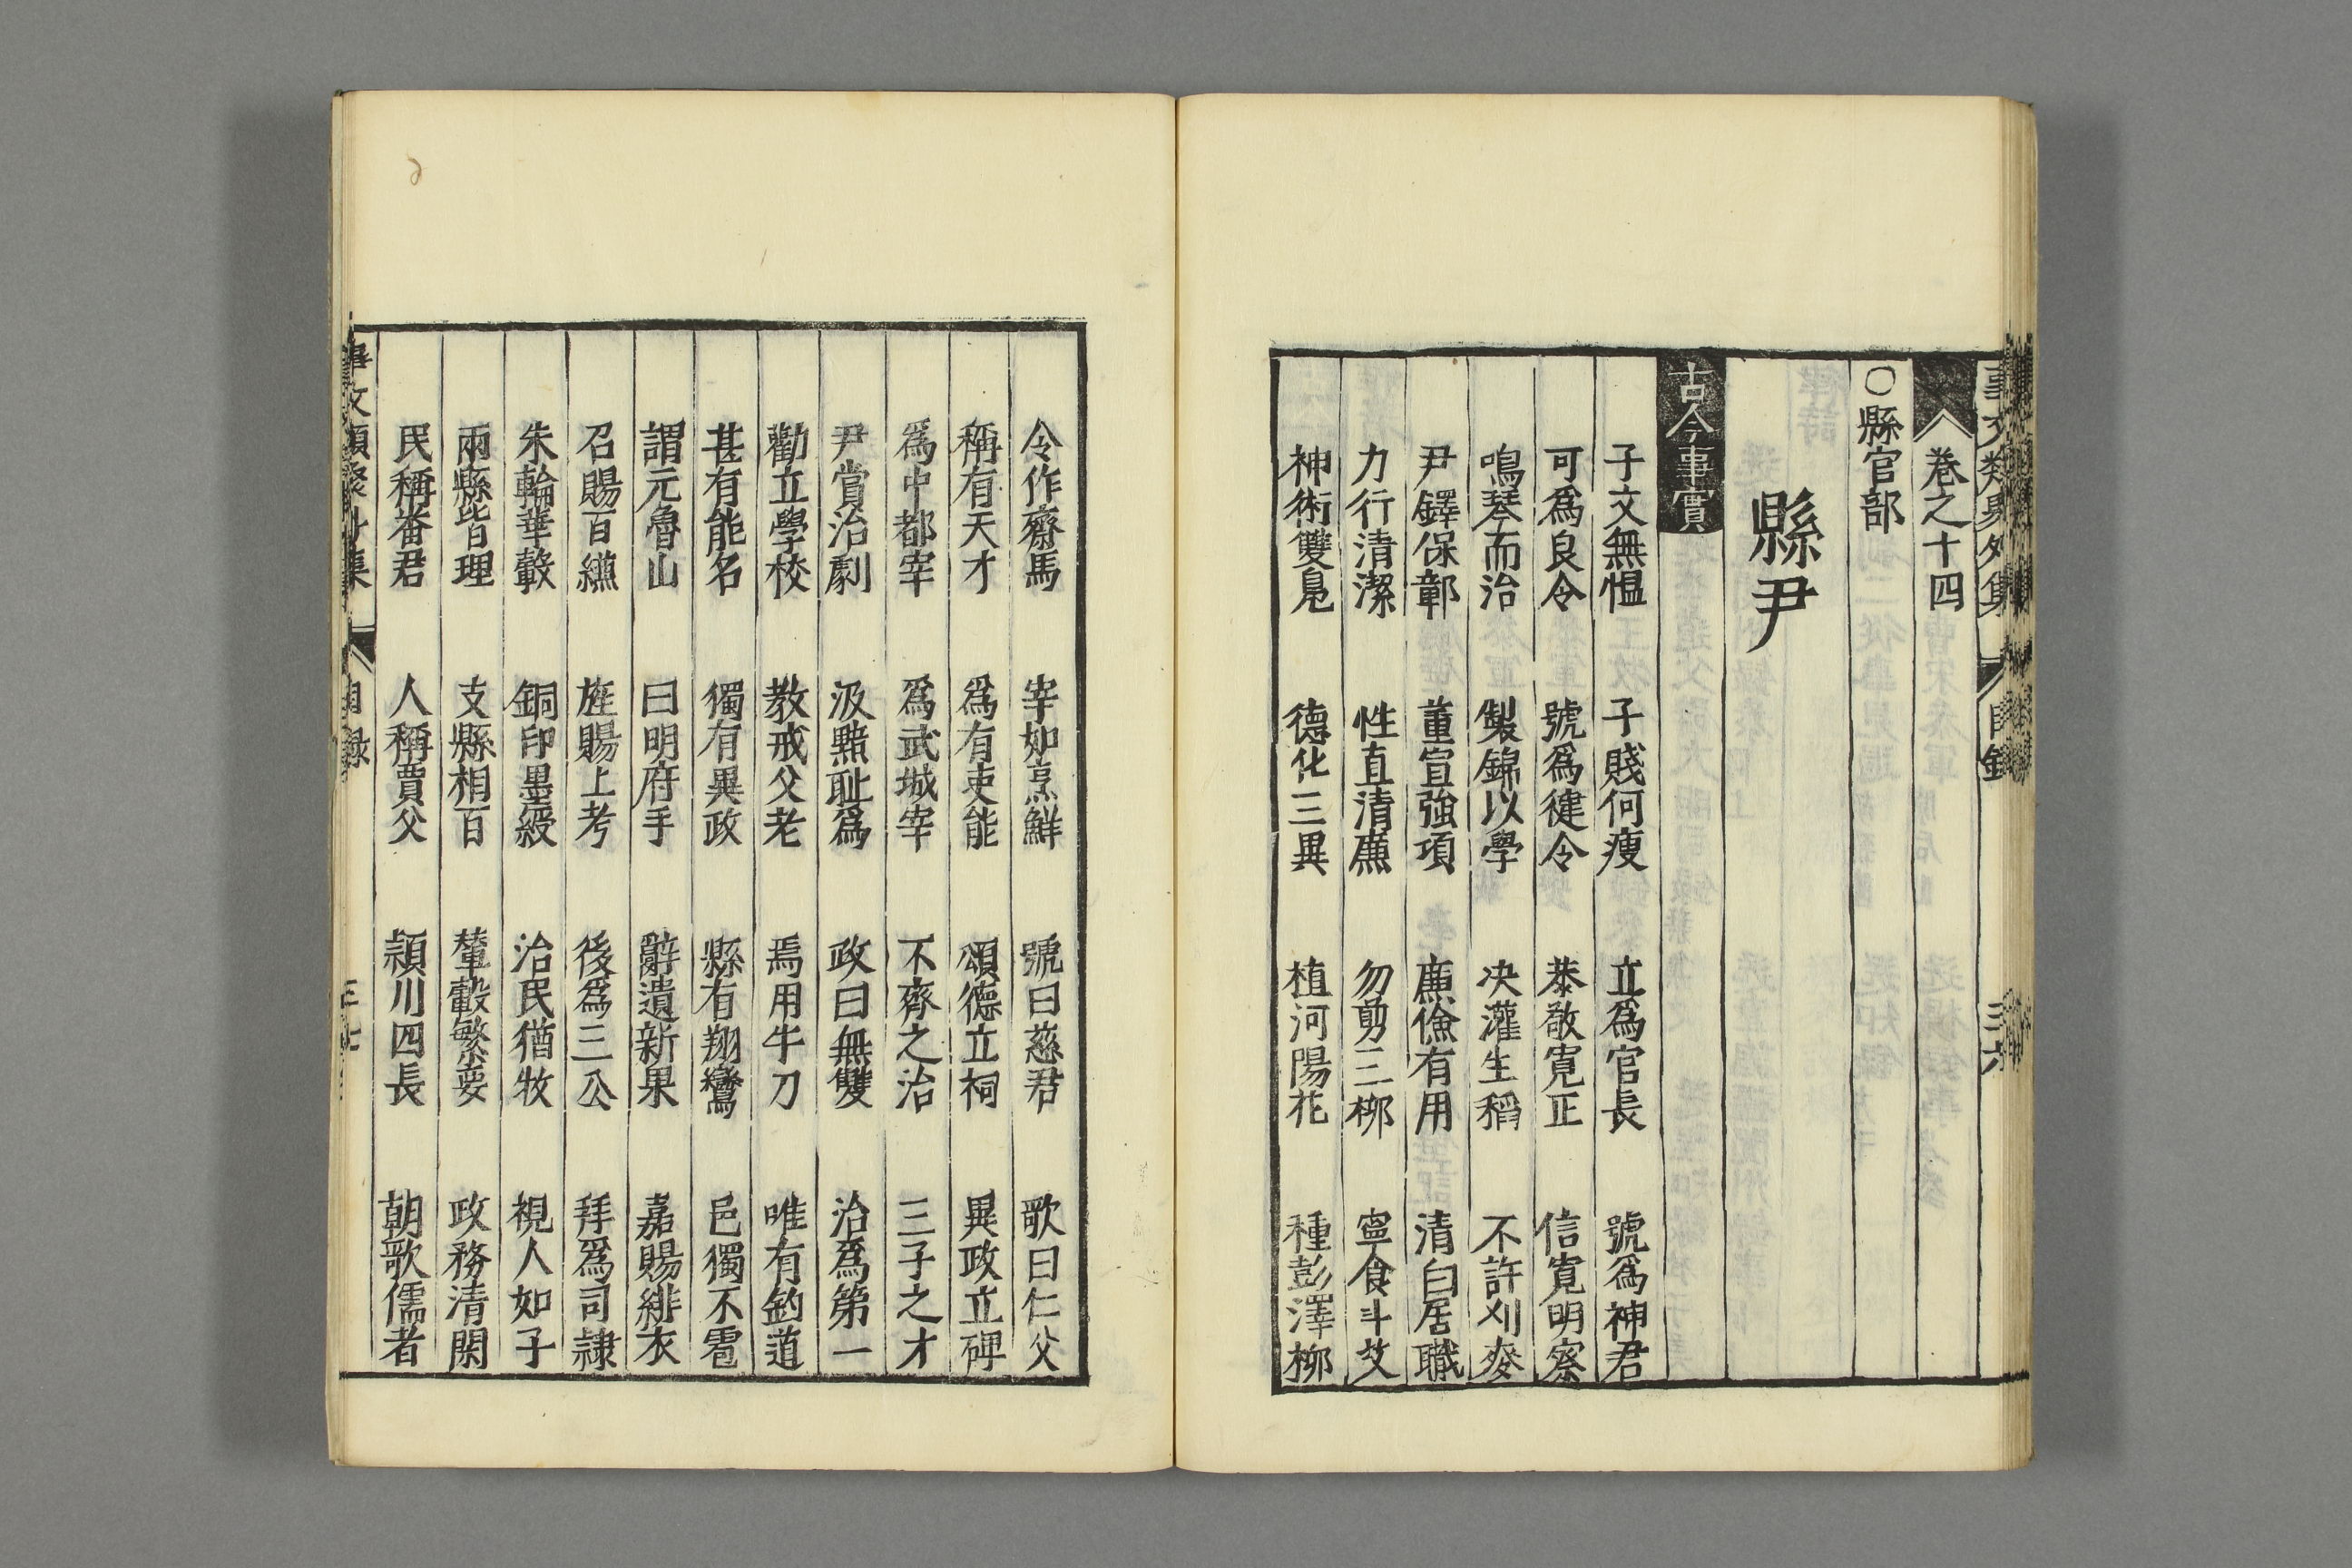 事文類聚外集 目錄 三六
卷之十四
○縣官部
縣尹
古今事實
子文無慍 子賤何瘦 立爲官長 號爲神君
可爲良令 號爲健令 恭敬寬正 信寬明察
鳴琴而治 製錦以學 决灌生稻 不許刈麥
尹鐸保鄣 董宣強項 廉儉有用 清白居職
力行清潔 性直清廉 勿剪三柳 寧食斗艾
神術雙鳧 德化三異 植河陽花 種彭澤柳
令作齋馬 宰如烹鮮 號曰慈君 歌曰仁父
稱有天才 爲有吏能 頌德立祠 異政立碑
爲中都宰 爲武城宰 不齊之治 三子之才
尹賞治劇 汲黯耻爲 政曰無雙 治爲第一
勸立學校 教戒父老 焉用牛刀 唯有釣道
甚有能名 獨有異政 縣有翔鸞 邑獨不雹
謂元魯山 曰明府手 辭遺新果 嘉賜緋衣
召賜百縑 旌賜上考 後爲三公 拜爲司隷
朱輪華轂 銅印墨綬 治民猶牧 視人如子
兩縣皆理 支縣相百 輦轂繁要 政務清閑
民稱番君 人稱賈父 潁川四長 朝歌儒者
事文類聚外集 目錄 三七